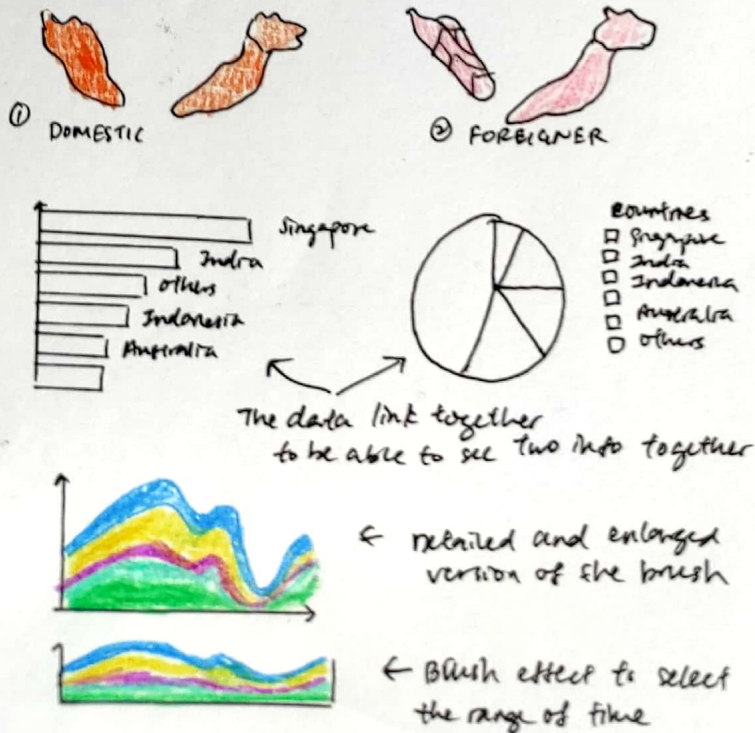 ① DOMESTIC
② FOREIGNER
Singapore
India
others
Indonesia
Australia
countries
Singapore
India
Indonesia
Australia
others
The data link together
to be able to see two info together
← Detailed and enlarged
version of the brush
← Brush effect to select
the range of time